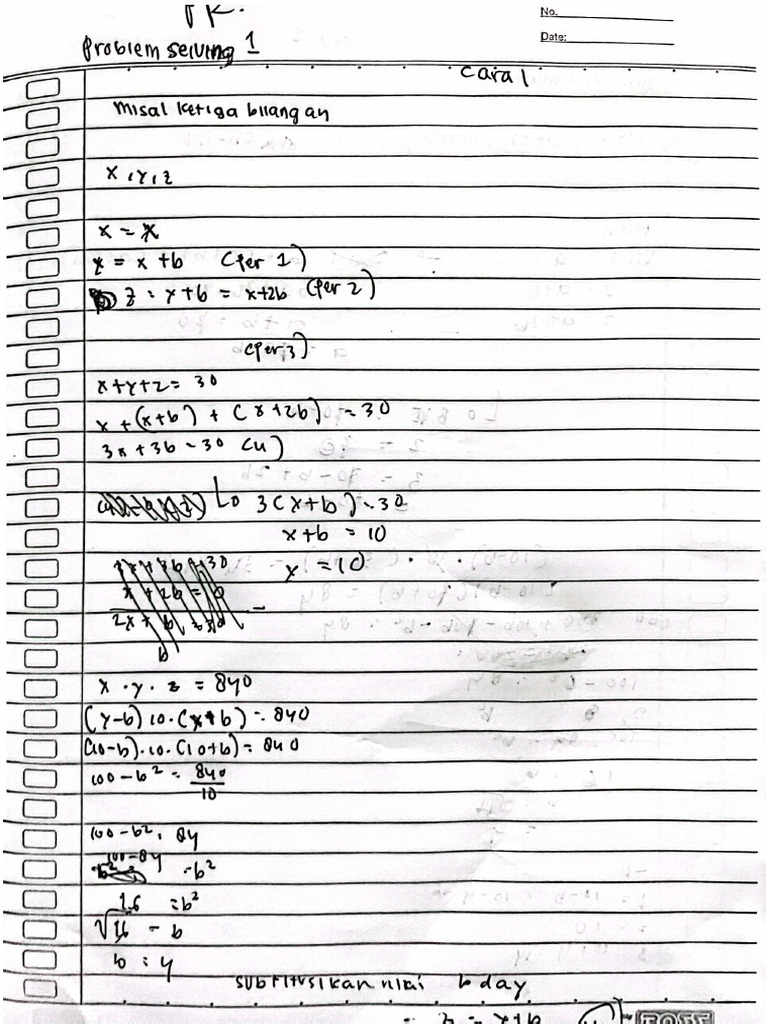 No.
Date:
PR.
Problem selving 1
Cara 1
Misal ketiga bilangan
x, y, z
x = x
y = x + b (Per 1)
z = y + b = x + 2b (Per 2)
(Per 3)
x + y + z = 30
x + (x + b) + (x + 2b) = 30
3x + 3b = 30 (4)
Lo 3(x + b) = 30
x + b = 10
y = 10
3x + 3b = 30
x + 2b = 0
b
x . y . z = 840
(y - b) 10 . (y + b) = 840
(10 - b) . 10 . (10 + b) = 840
100 - b² = 840/10
100 - b² = 84
100 - 84 = b²
16 = b²
√16 = b
b = 4
substitusikan nilai b day
= y + b